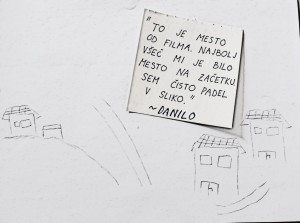 "TO JE MESTO
OD FILMA. NAJBOLJ
VŠEČ MI JE BILO
MESTO NA ZAČETKU
SEM ČISTO PADEL
V SLIKO."
~DANILO